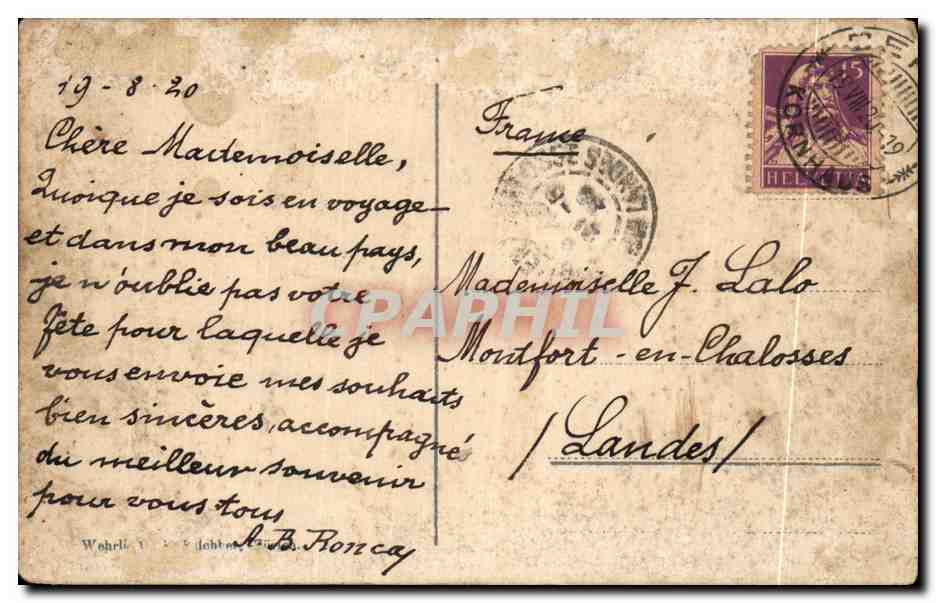 19 - 8 - 20
Chère Mademoiselle,
Quoique je sois en voyage
et dans mon beau pays,
je n'oublie pas votre
fête pour laquelle je
vous envoie mes souhaits
bien sincères, accompagné
du meilleur souvenir
pour vous tous
A. B. Roncay
Wehrli
France
15
HELVETIA
KORNHAUS
Mademoiselle J. Lalo
Montfort-en-Chalosses
/Landes/
CPAPHIL